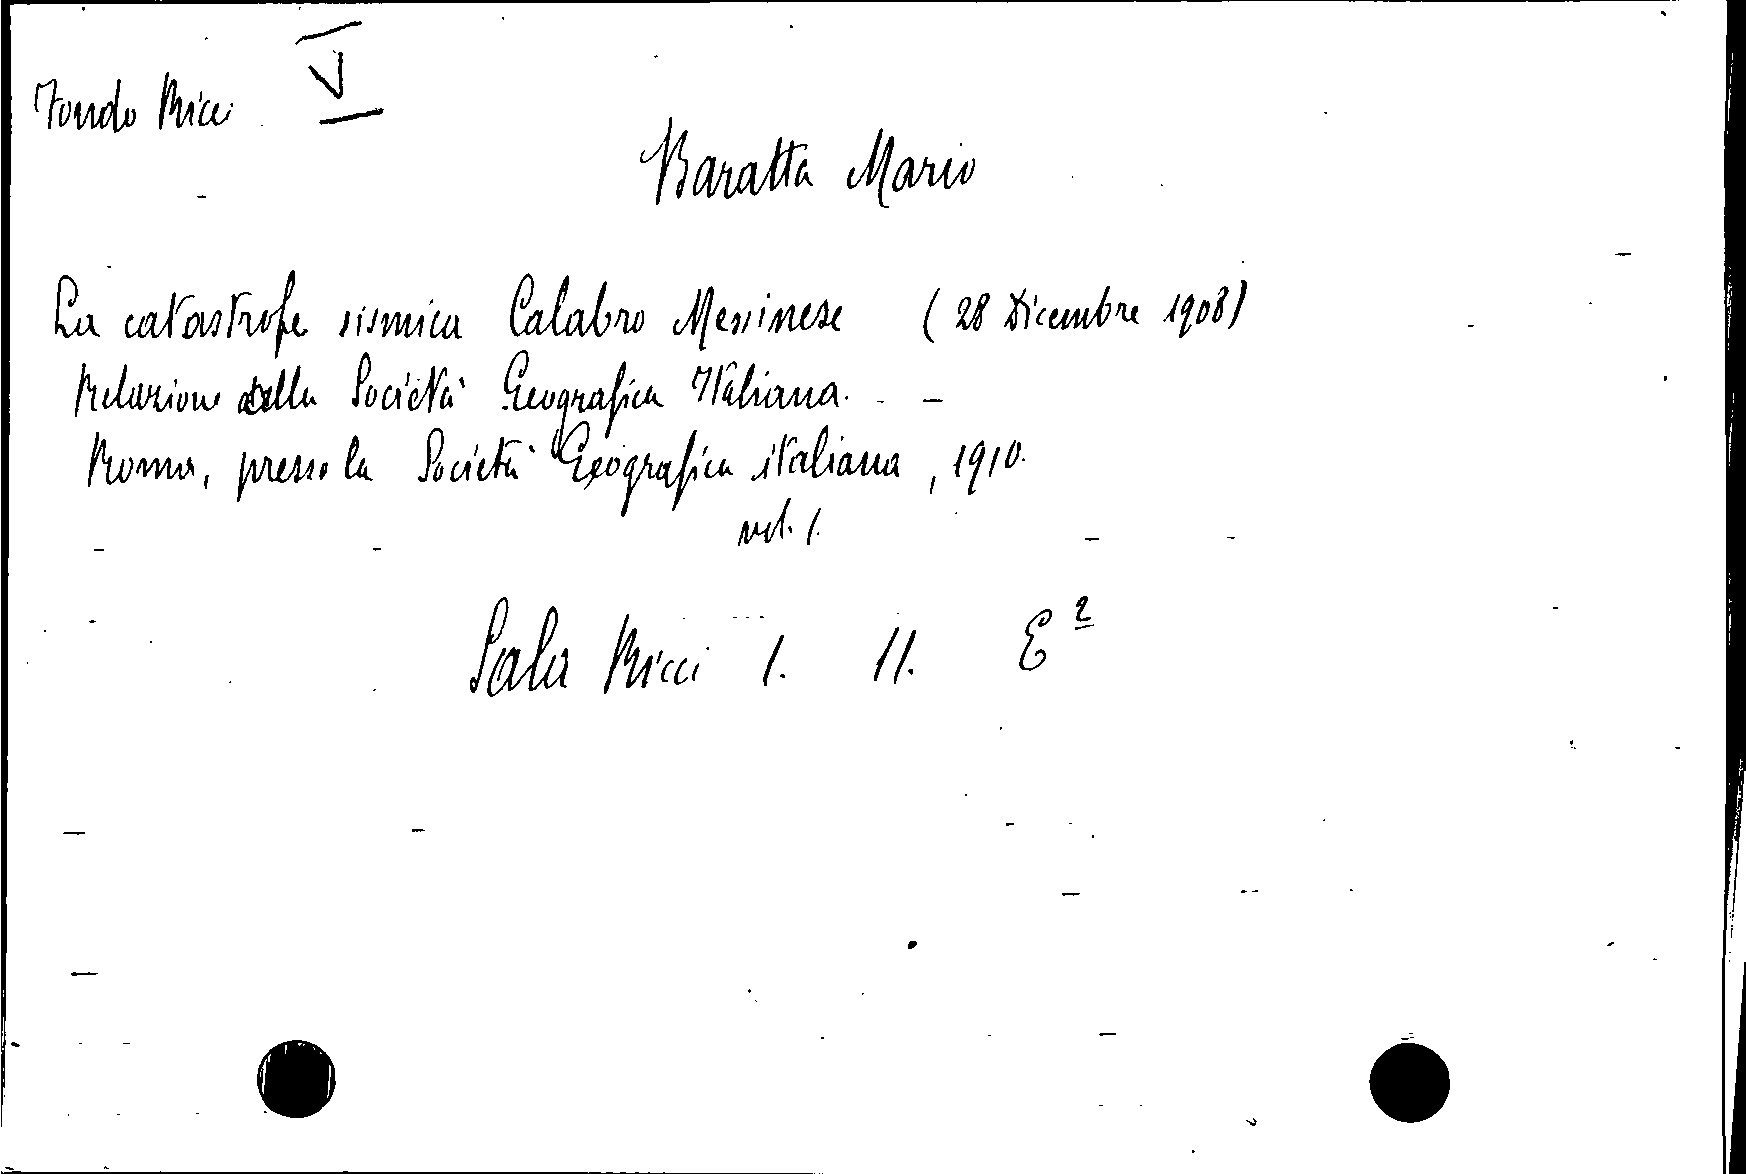 Fondo Ricci V
Baratta Mario
La catastrofe sismica Calabro Messinese (28 Dicembre 1908)
Relazione della Società Geografica Italiana. -
Roma, presso la Società Geografica italiana, 1910.
vol. 1.
Sala Ricci I. II. E²